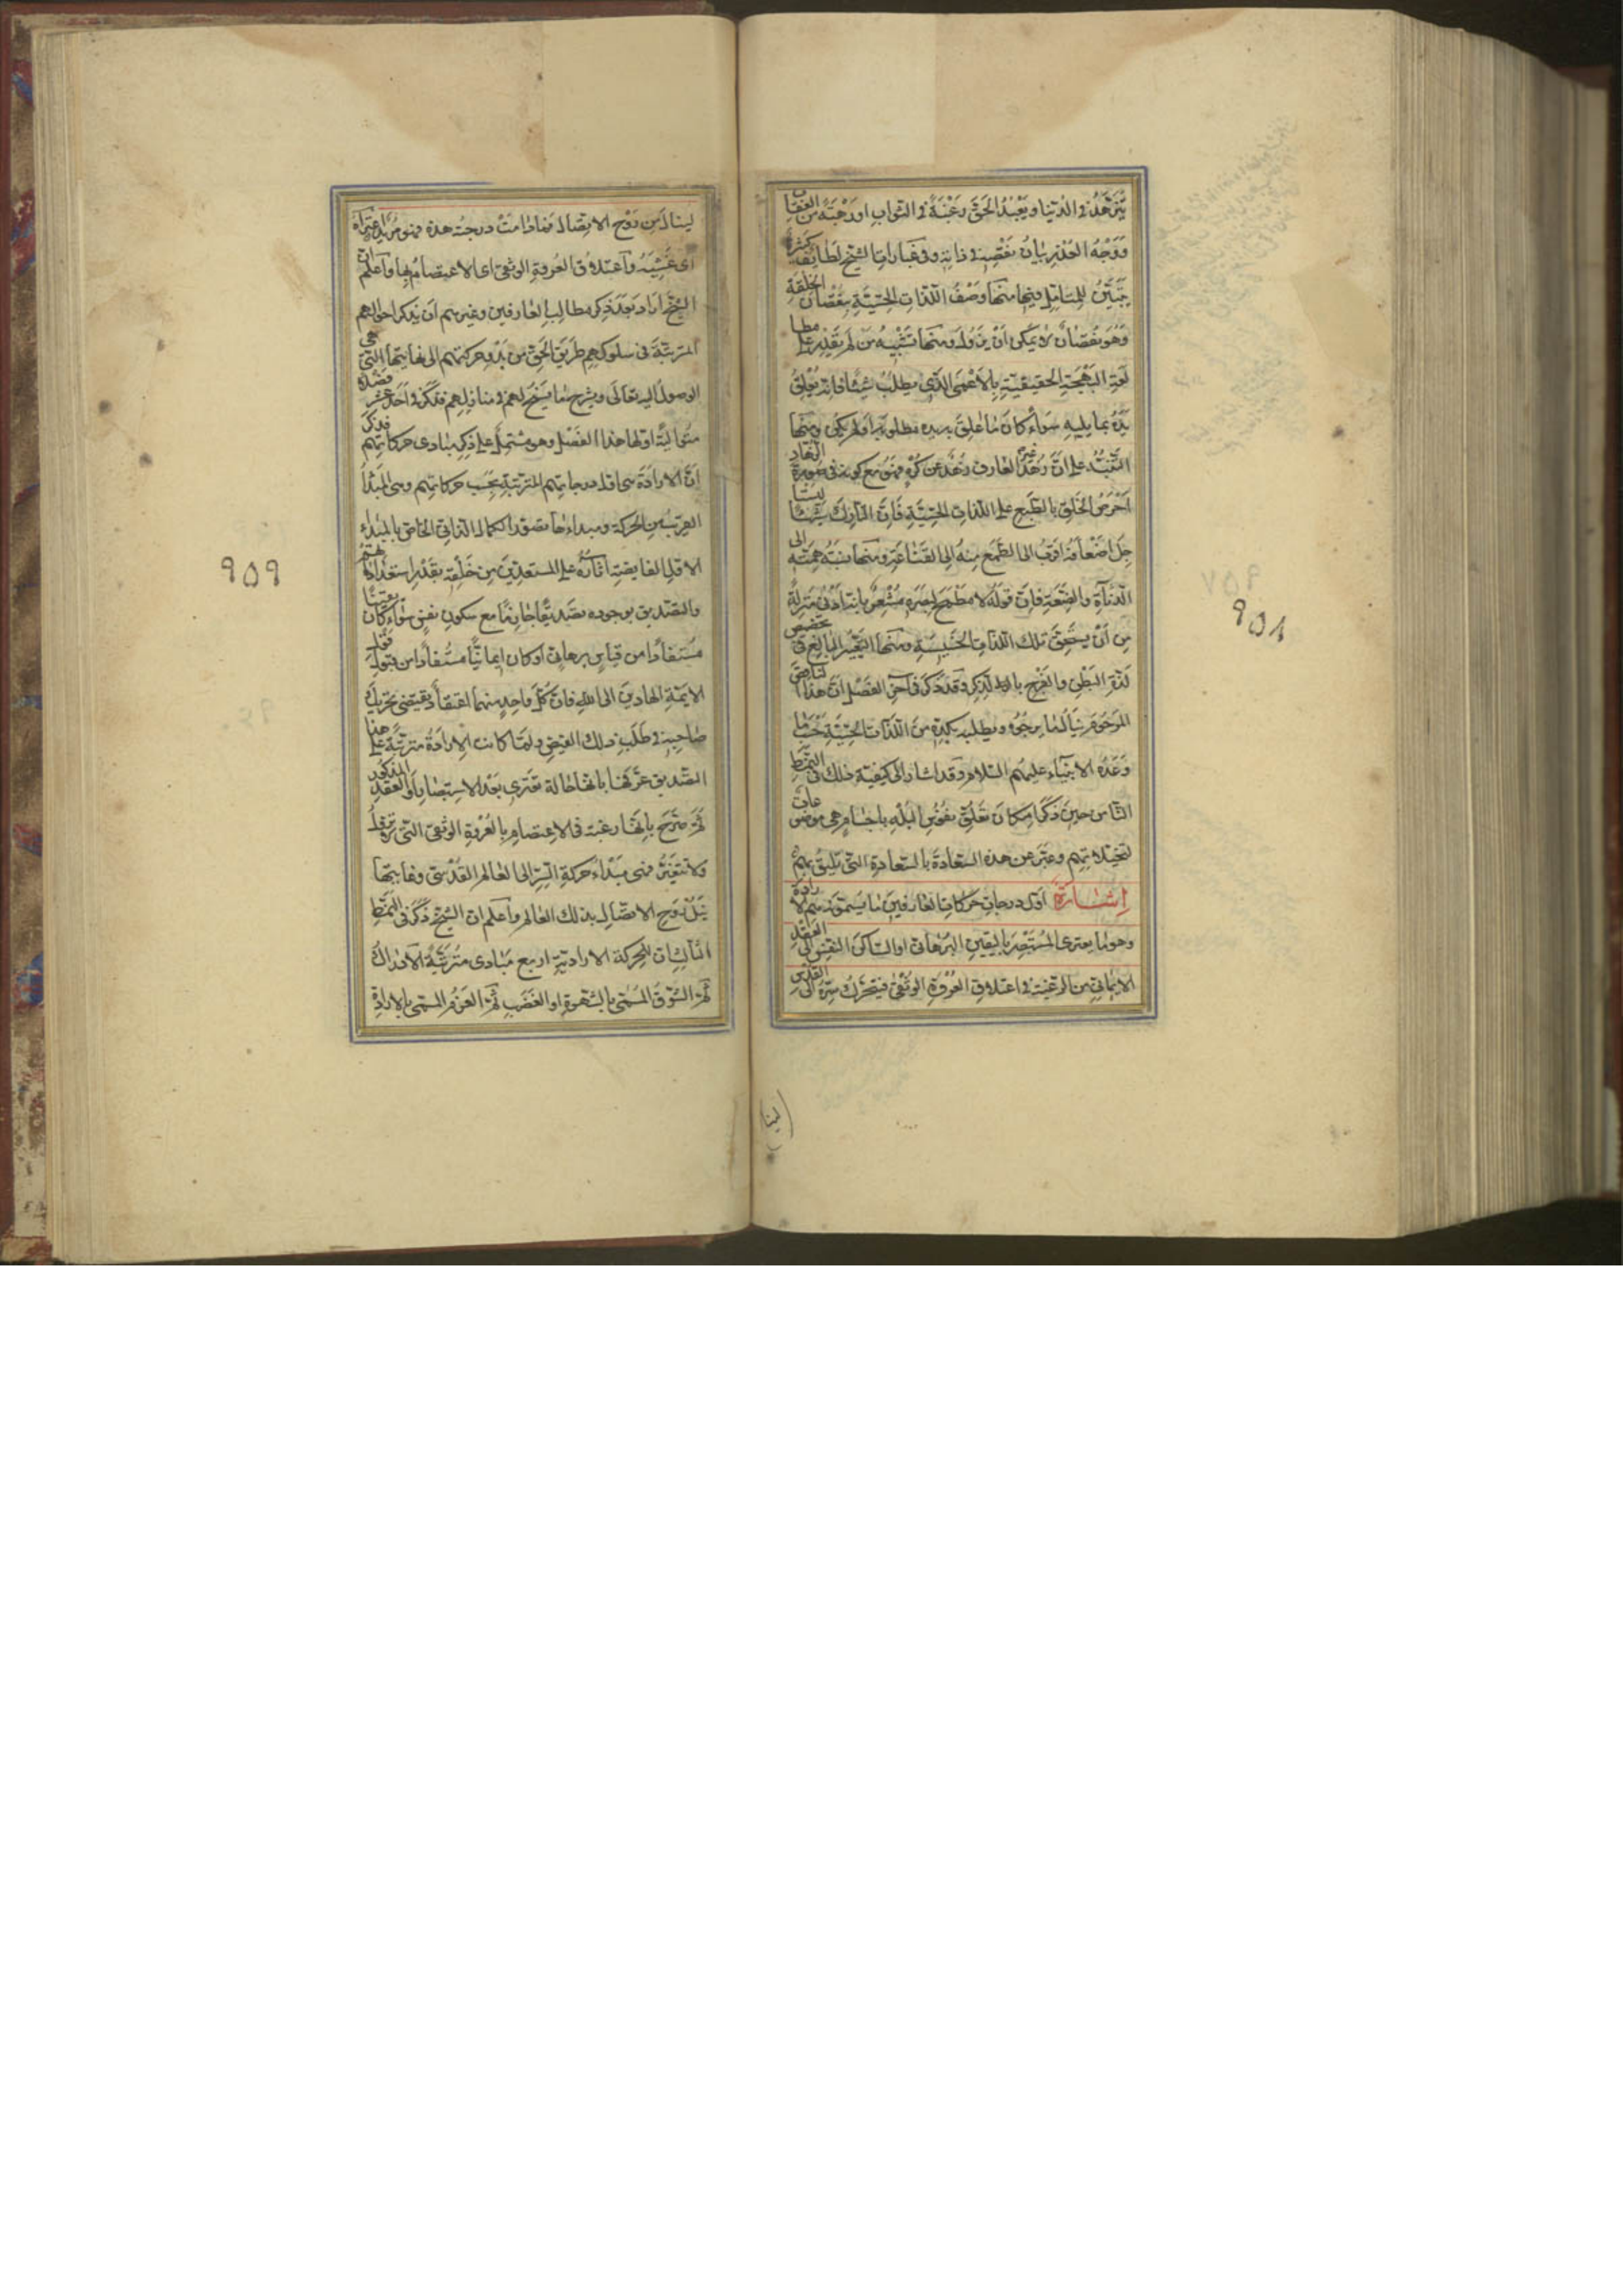 يتزهّد في الدنيا ويعبد الحقّ رغبةً في الثواب او رهبته من العقاب
ووجه العذر بيان نقصه في ذاته وفي عبارات الشيخ لطائف كثيرة
يتبيّن للمتأمل فيها منها وصف اللذات الحسّيّة بنقصان الخلقة
وهو نقصان لا يمكن ان يزول ومنها تشبيه من لم يقدر على مطا
لعة البهجة الحقيقيّة بالاعمى الذي يطلب شيئا فانه يعلق
يده بما يليه سواء كان ما علق به يده مطلوبه اولم يكن ومنها
التنبيه على انّ زهد غير العارف زهد عن كره فهو مع كونه في صورة الزهاد
احرص الخلق بالطبع على اللذات الحسّيّة فانّ التارك شيئا ليستا
جل اضعافه اقرب الى الطمع منه الى القناعة ومنها نسبة همته الى
الدناءة والضعة فانّ قوله لا مطمح لبصره مشعر بانه ادنى منزلة
من ان يستحق تلك اللذات الخسيسة ومنها التعيير البالغ في تخصيص
لذة البطن والفرج بالذكر وقد ذكر في آخر الفصل ان هذا الناقص
المرحوم ينال ما يرجوه ويطلبه بكدّه من اللذات الحسّيّة حسب ما
وعده الانبياء عليهم السّلام وقد اشار الى كيفية ذلك في النمط
الثامن حين ذكر امكان تعلق نفوس البله باجسام هي موضوعات
لتخيلاتهم وعبّر عن هذه السعادة بالسعادة التي تليق بهم
إشارة اوّل درجات حركات العارفين ما يسمونه هم الارادة
وهو ما يعترى المستبصر باليقين البرهاني او الساكن النفس الى العقد
الايماني من الرغبة في اعتلاق العروة الوثقى فيتحرك سرّه الى القدس
(لينا)
٩٥٨
لينال من روح الاتصال فما دامت درجته هذه فهو مريد اعتراه
اى غشيه واعتلاق العروة الوثقى اى الاعتصام بها واعلم ان
الشيخ اراد بعد ذكر مطالب العارفين وغيرهم ان يذكر احوالهم
المترتبة في سلوكهم طريق الحق من بدو حركتهم الى نهايتها التي هي
الوصول اليه تعالى ويشرح ما يسنح لهم في منازلهم فذكر في احد عشر فصلا
متوالية اولها هذا الفصل وهو مشتمل على ذكر مبادى حركاتهم فذكر
انّ الارادة هي اول درجاتهم المترتبة بحسب حركاتهم وهي المبدأ
القريب من الحركة ومبداءها تصور الكمال الذاتي الخاص بالمبداء
الاول الفايضة اثاره على المستعدين من خلقه بقدر استعداداتهم
والتصديق بوجوده تصديقا جازما مع سكون نفس سواء كان يقينيا
مستفادا من قياس برهاني او كان ايمانيا مستفادا من قبول قول
الايمة الهادين الى الله فان كل واحد منهما اعتقاد يقتضي تحريك
صاحبه في طلب ذلك الفيض ولمّا كانت الارادة مترتبة على هذا
التصديق عرّفها بانها حالة تعترى بعد الاستبصار او العقد المذكور
ثم صرّح بانها رغبة في الاعتصام بالعروة الوثقى التي لا تزول
ولا تتغير فهي مبداء حركة السر الى العالم القدسي وغايتها
نيل روح الاتصال بذلك العالم واعلم ان الشيخ ذكر في النمط
الثالث ان للحركة الارادية اربع مبادى مترتبة الادراك
ثم الشوق المسمى بالشهوة او الغضب ثم العزم المسمى بالارادة
٩٥٩